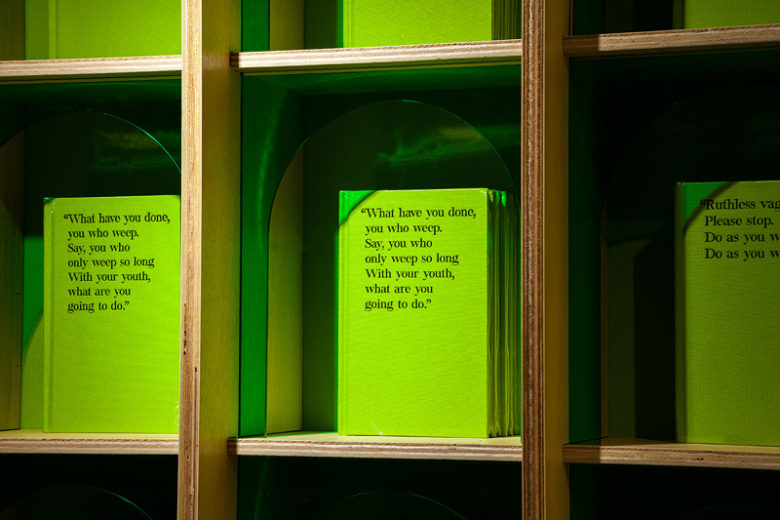 “What have you done,
you who weep.
Say, you who
only weep so long
With your youth,
what are you
going to do.”
“What have you done,
you who weep.
Say, you who
only weep so long
With your youth,
what are you
going to do.”
“Ruthless
Please stop.
Do as you
Do as you